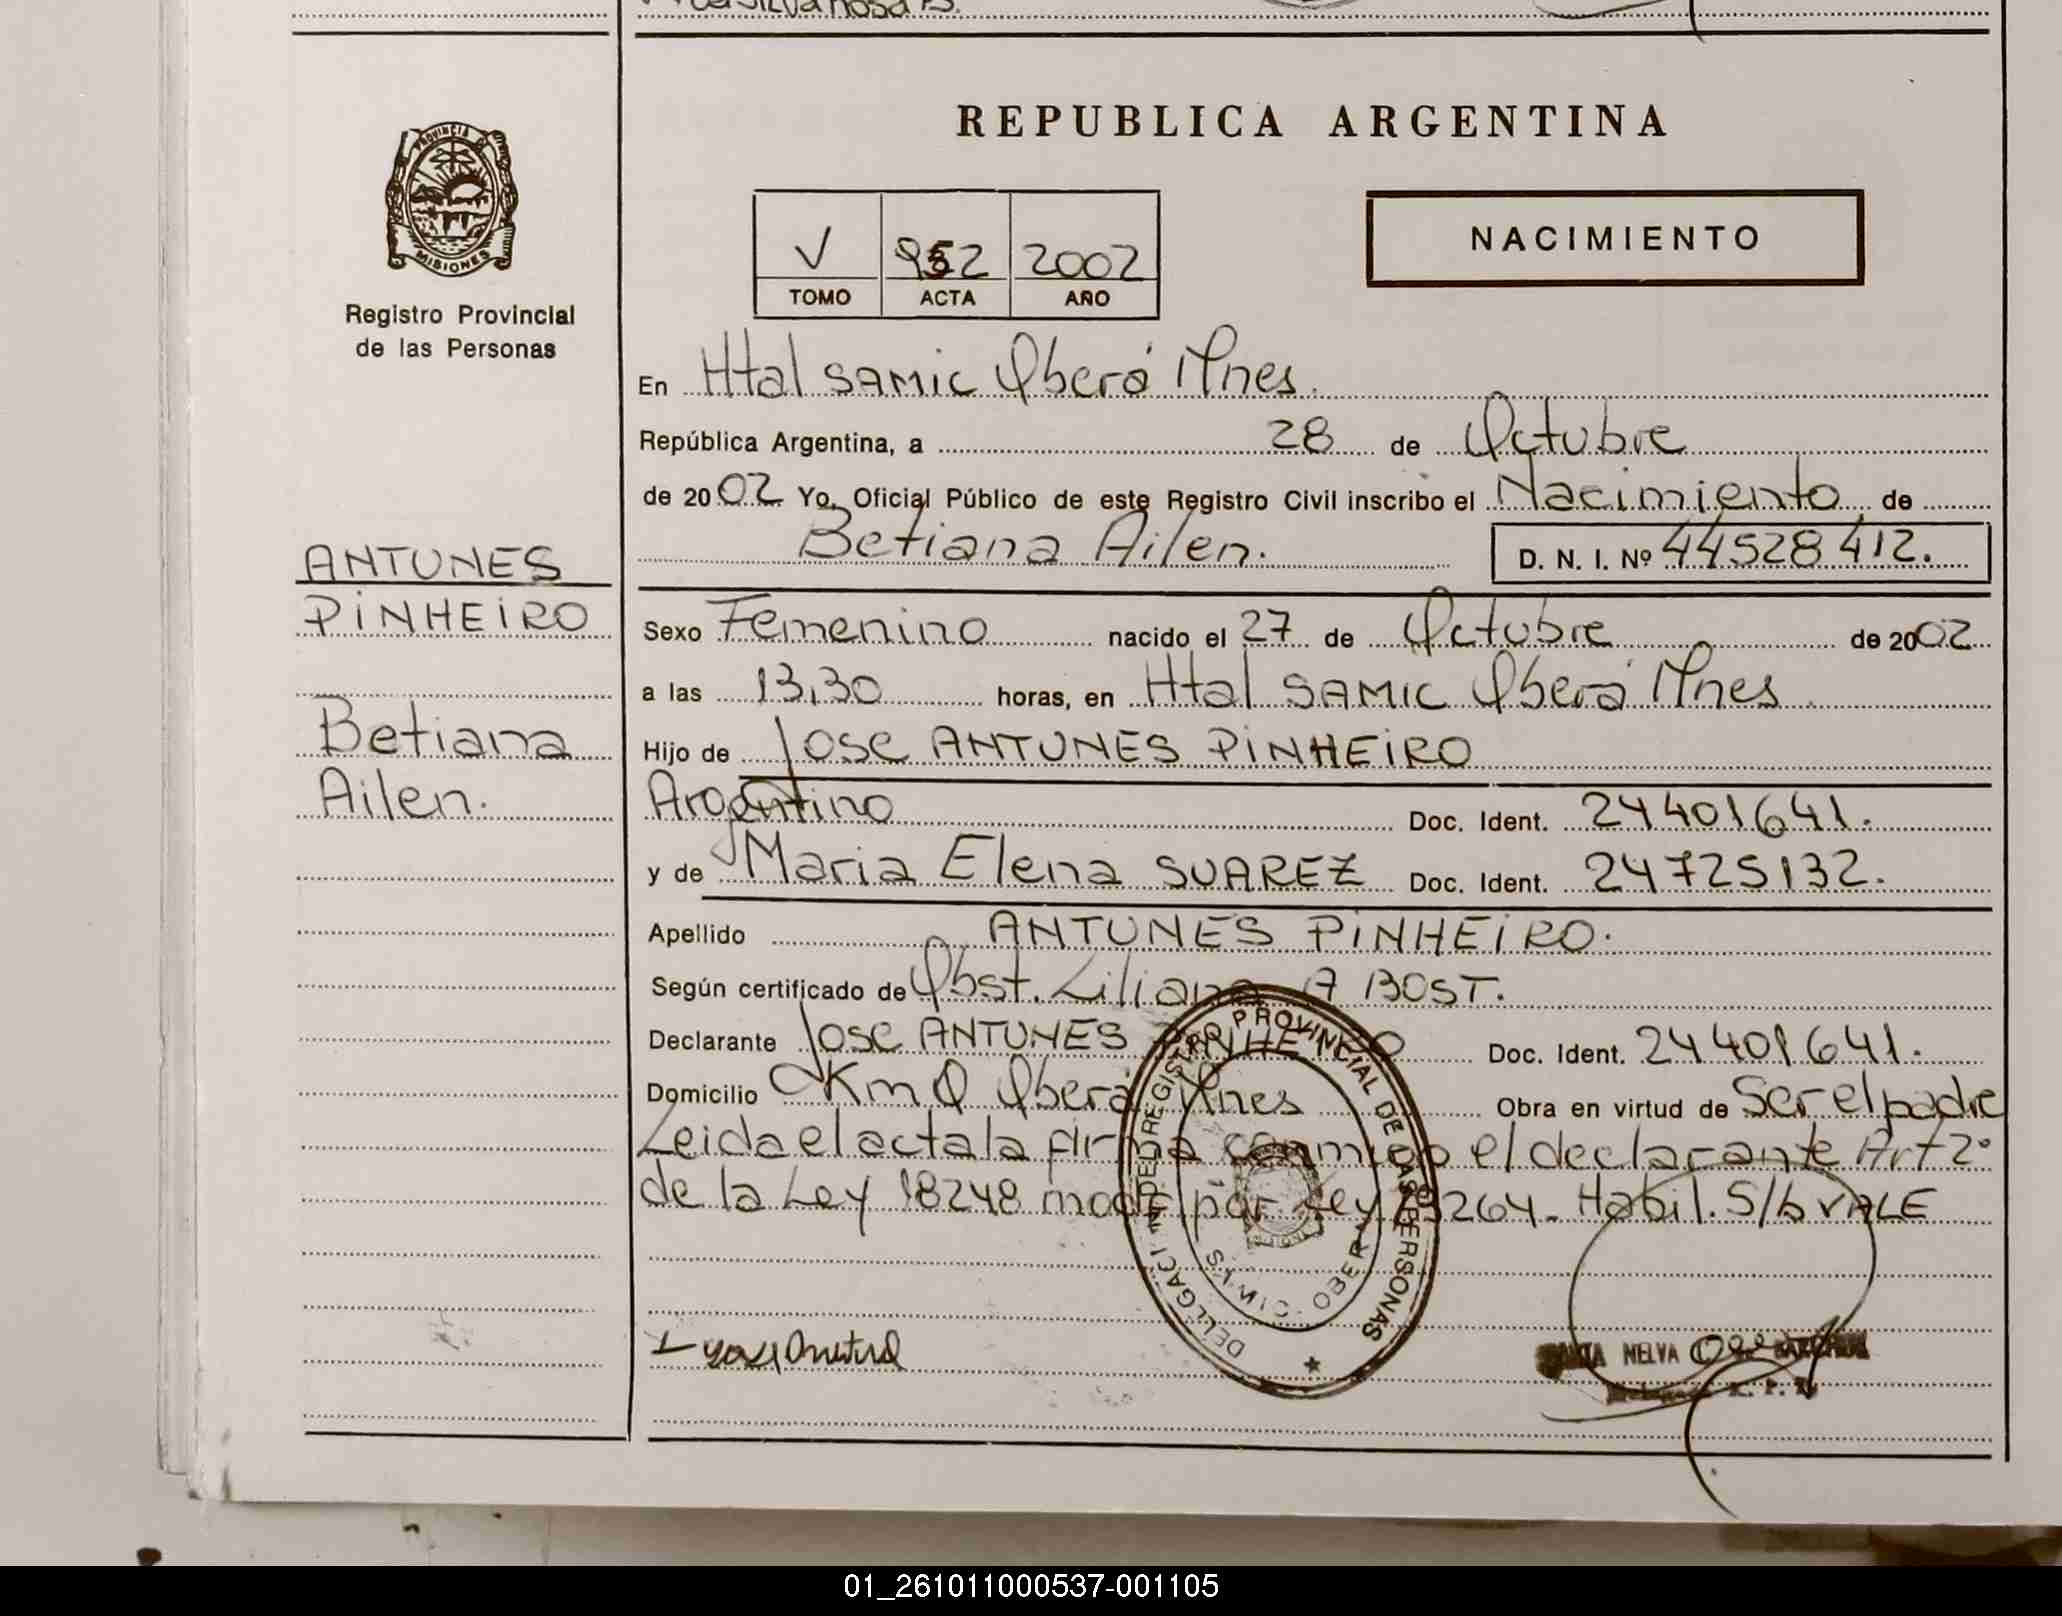 REPUBLICA ARGENTINA
PROVINCIA DE
MISIONES
Registro Provincial
de las Personas
V 952 2002
TOMO ACTA AÑO
NACIMIENTO
En Htal SAMIC Oberá Mnes.
República Argentina, a 28 de Octubre
de 2002 Yo, Oficial Público de este Registro Civil inscribo el Nacimiento de
Betiana Ailen. D. N. I. Nº 44528412.
ANTUNES
PINHEIRO
Betiana
Ailen.
Sexo Femenino nacido el 27 de Octubre de 2002
a las 13,30 horas, en Htal SAMIC Oberá Mnes
Hijo de Jose ANTUNES PINHEIRO
Argentino Doc. Ident. 24401641.
y de Maria Elena SUAREZ Doc. Ident. 24725132.
Apellido ANTUNES PINHEIRO.
Según certificado de Obst. Liliana A BOST.
Declarante Jose ANTUNES PINHEIRO Doc. Ident. 24401641.
Domicilio Km 0 Oberá Mnes Obra en virtud de Ser el padre
Leida el acta la firma conmigo el declarante Art 2º
de la Ley 18248 mod. por Ley 23264. Habil. S/b VALE
REGISTRO PROVINCIAL DE LAS PERSONAS
OBERA
NELVA
01_261011000537-001105